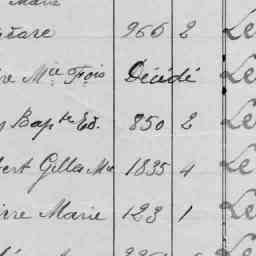 Marie
zare 966 2 Le
re Mce Frois Décédé Le
Bapte Ed. 850 2 Le
bert Gilles Mie 1835 4 Le
rre Marie 123 1 Le